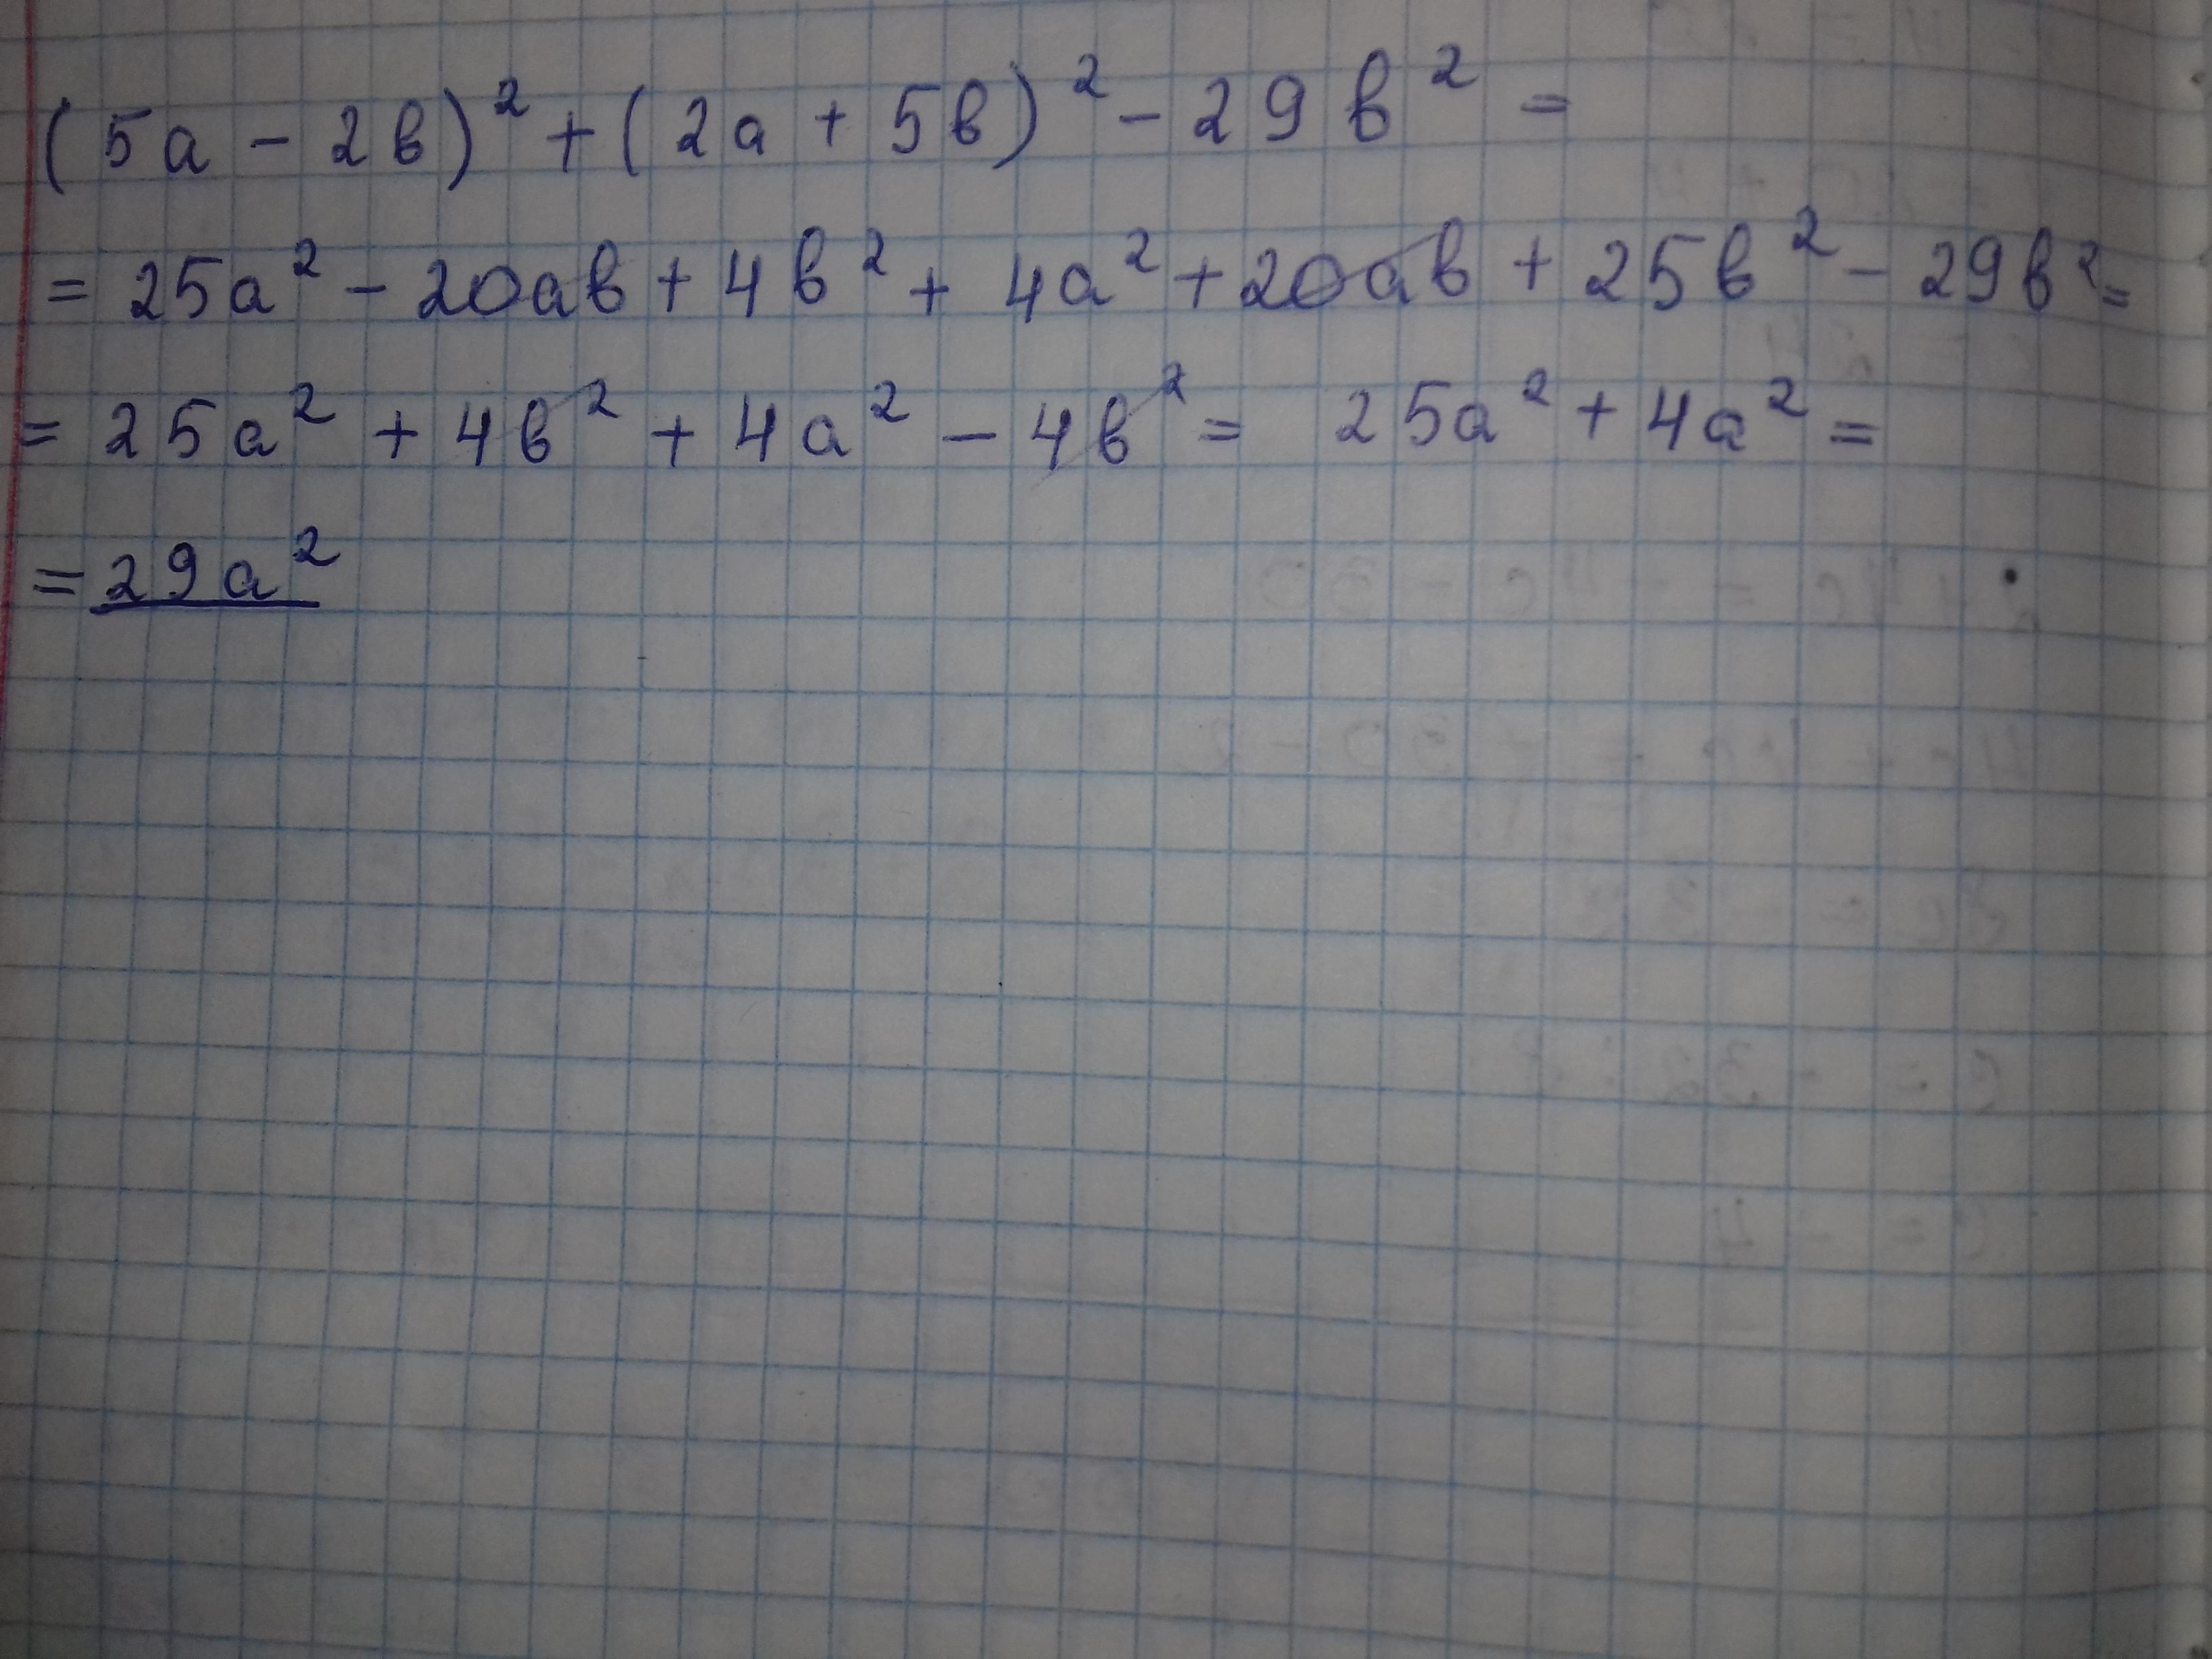 (5а - 2в)² + (2а + 5в)² - 29в² =
= 25а² - 20ав + 4в² + 4а² + 20ав + 25в² - 29в² =
= 25а² + 4в² + 4а² - 4в² = 25а² + 4а² =
= 29а²